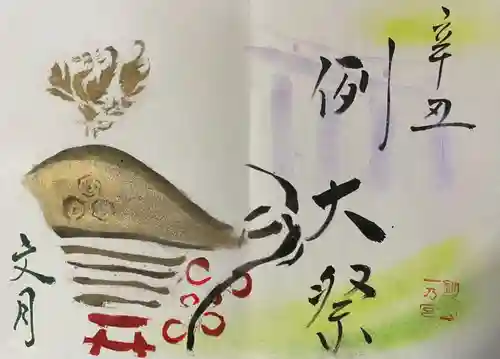 辛丑
例大祭
文月